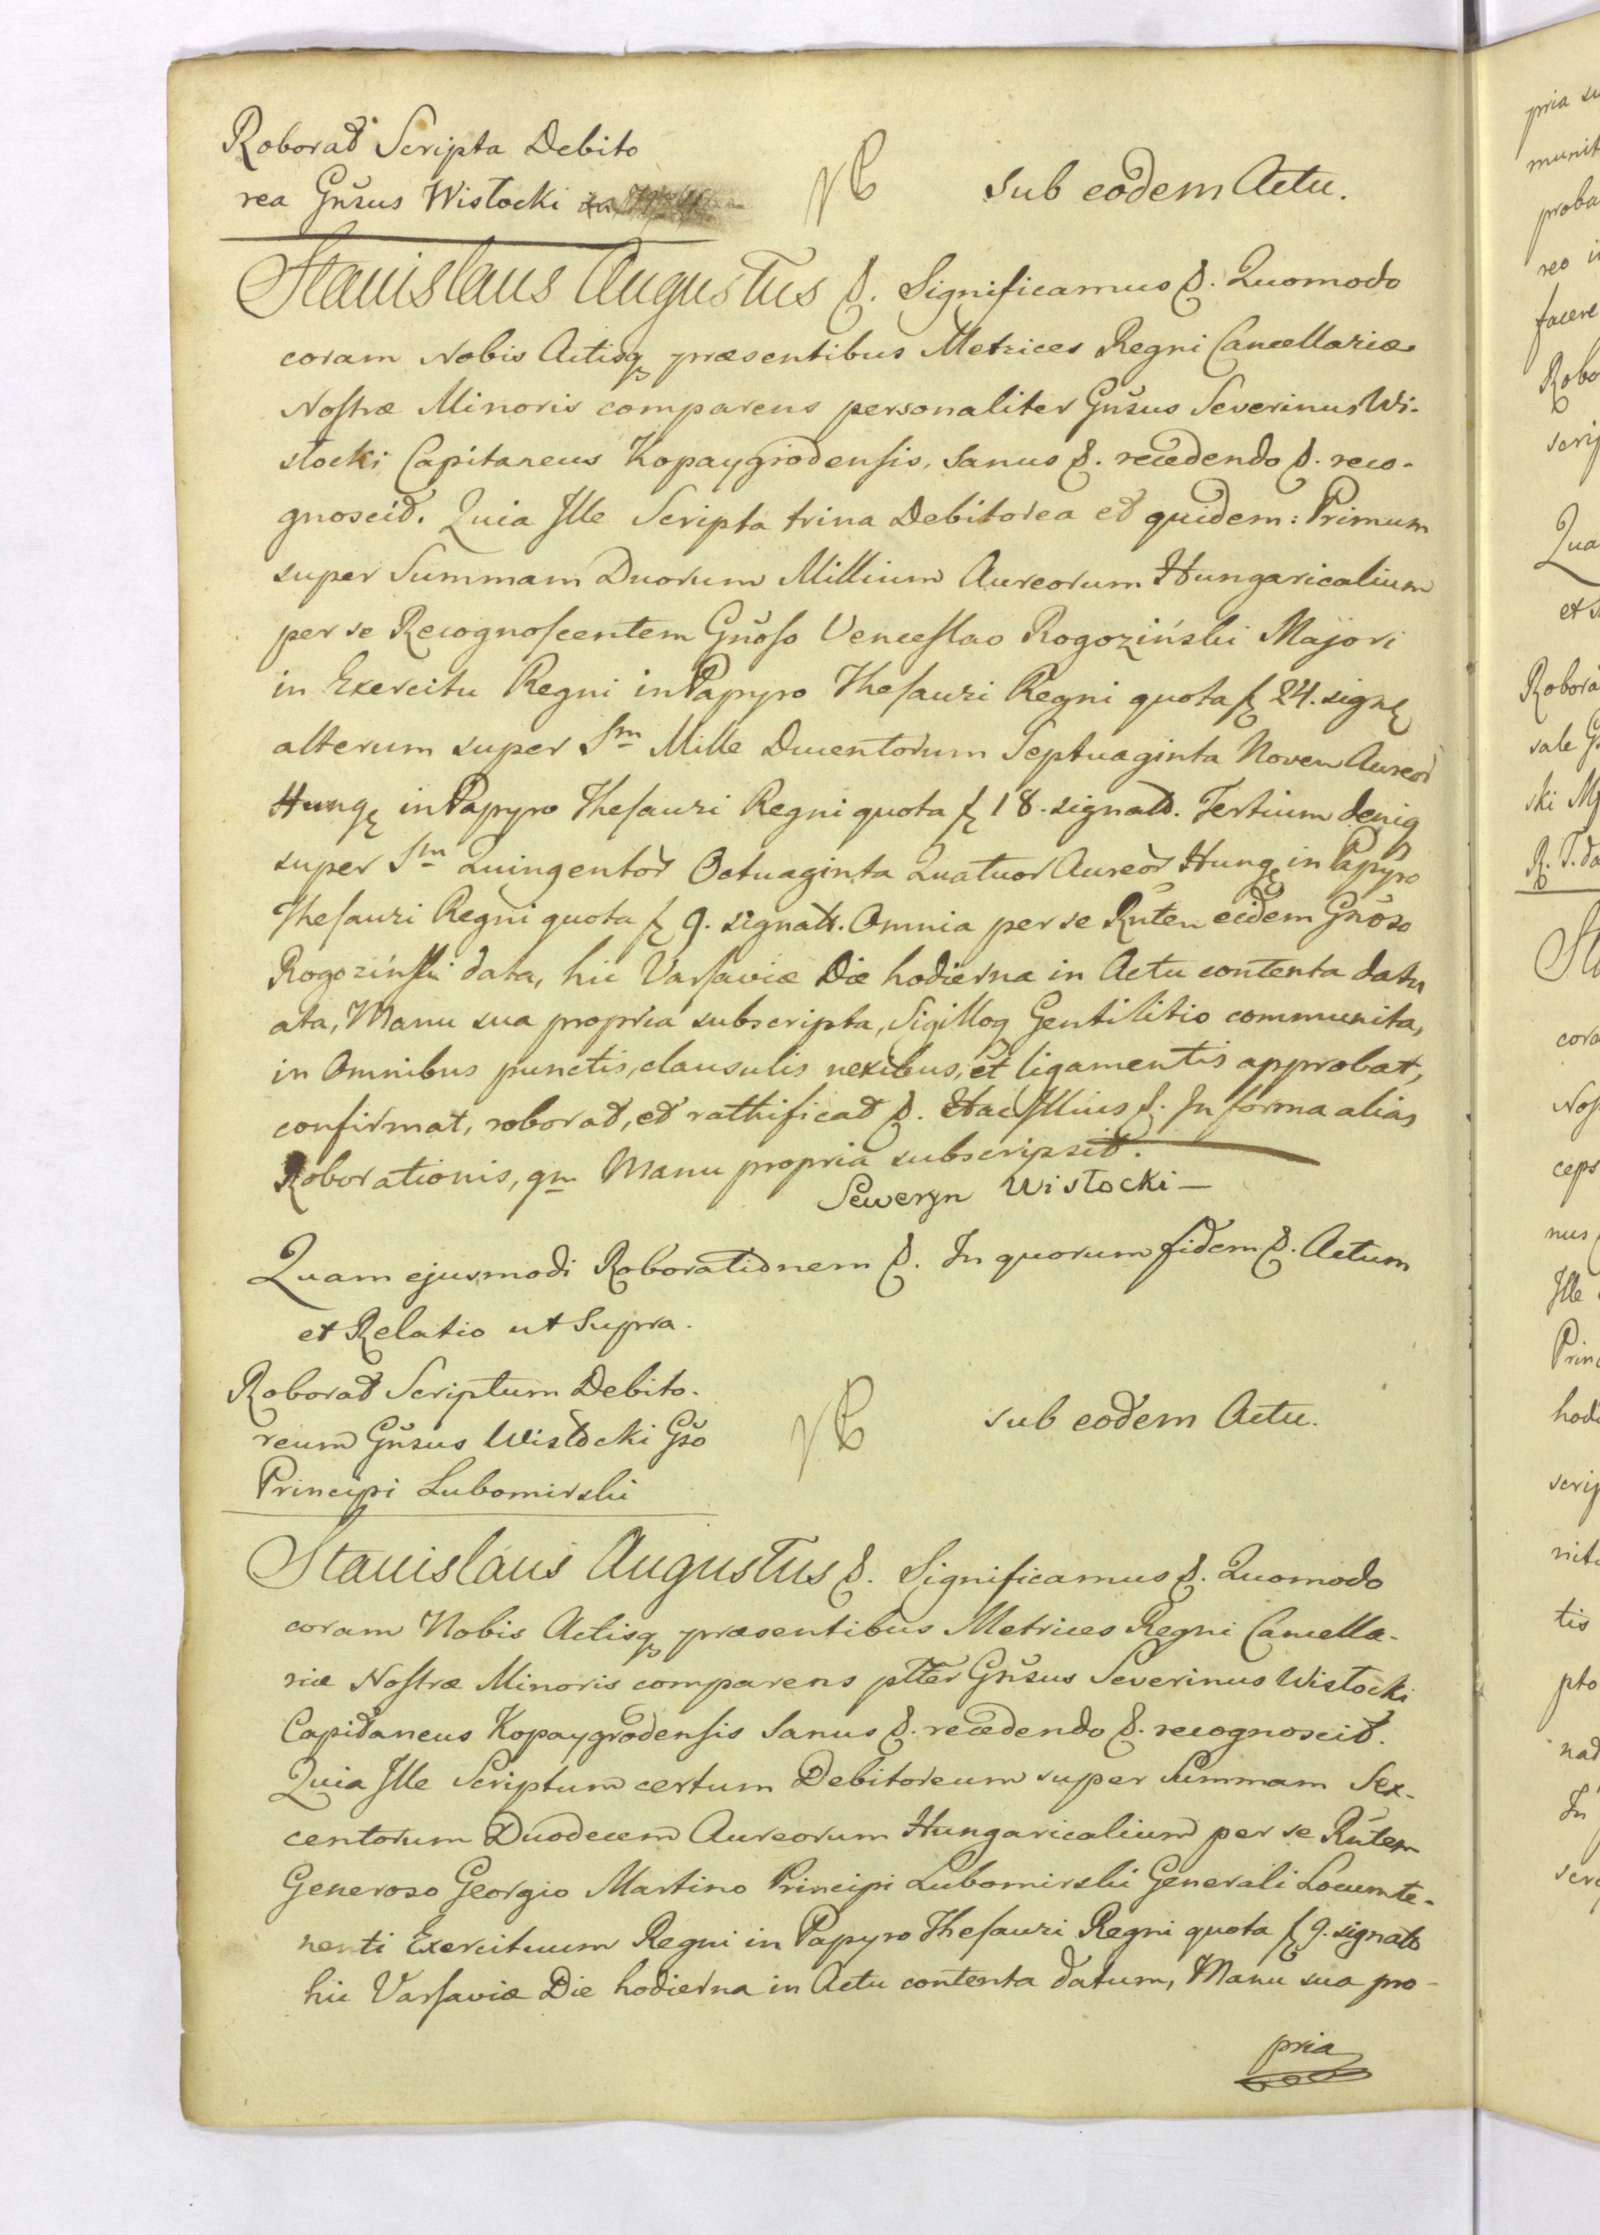 Roborat Scripta Debito
rea Gnsus Wisłocki
sub eodem Actu.
Stanislaus Augustus &. Significamus &. Quomodo
coram Nobis Actisq præsentibus Metrices Regni Cancellariæ
Nostræ Minoris comparens personaliter Gnsus Severinus Wi-
słocki Capitaneus Kopaygrodensis, sanus &. recedendo &. reco-
gnoscit. Quia Ille Scripta trina Debitorea et quidem: Primum
super Summam Duorum Millium Aureorum Hungaricalium
per se Recognoscentem Gnoso Venceslao Rogoziński Majori
in Exercitu Regni in Papyro Thesauri Regni quota f 24. sign
alterum super Sm Mille Ducentorum Septuaginta Novem Aureor
Hung in Papyro Thesauri Regni quota f 18. signato. Tertium deniq
super Sm Quingentor Octuaginta Quatuor Aureor Hung in Papyro
Thesauri Regni quota f 9. signato. Omnia per se Rnten eidem Gnoso
Rogoziński data, hic Varsaviæ Die hodierna in Actu contenta datu
ata, Manu sua propria subscripta, Sigilloq Gentilitio communita,
in Omnibus punctis, clausulis nexibus, et ligamentis approbat,
confirmat, roborat, et rathificat &. Hac Illius &. In forma alias
Roborationis, qm Manu propria subscripsit.
Seweryn Wisłocki —
Quam ejusmodi Roborationem &. In quorum fidem &. Actum
et Relatio ut Supra.
Roborat Scriptum Debito-
reum Gnsus Wisłocki Gso
Principi Lubomirski
sub eodem Actu.
Stanislaus Augustus &. Significamus &. Quomodo
coram Nobis Actisq præsentibus Metrices Regni Cancella-
riæ Nostræ Minoris comparens ptter Gnsus Severinus Wisłocki
Capitaneus Kopaygrodensis Sanus &. recedendo &. recognoscit.
Quia Ille Scriptum certum Debitoreum super Summam Sex-
centorum Duodecem Aureorum Hungaricalium per se Rntem
Generoso Georgio Martino Principi Lubomirski Generali Locumte-
nenti Exercituum Regni in Papyro Thesauri Regni quota f 9. signato
hic Varsaviæ Die hodierna in Actu contenta datum, Manu sua pro-
pria